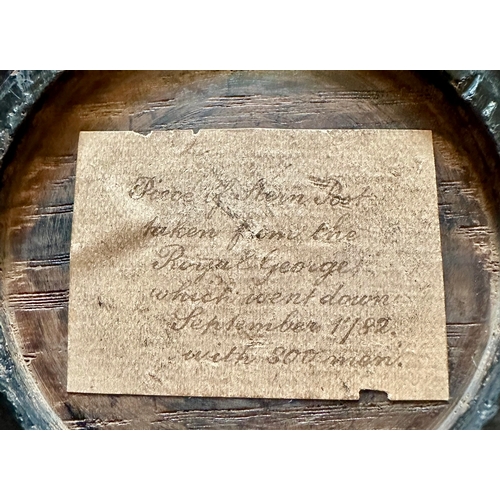 Piece of Stern Post
taken from the
Royal George
which went down
September 1782
with 800 men.